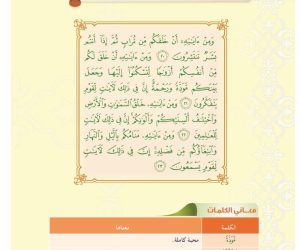 وَمِنْ ءَايَٰتِهِۦٓ أَنْ خَلَقَكُم مِّن تُرَابٍ ثُمَّ إِذَآ أَنتُم
بَشَرٌ تَنتَشِرُونَ ٢٠ وَمِنْ ءَايَٰتِهِۦٓ أَنْ خَلَقَ لَكُم
مِّنْ أَنفُسِكُمْ أَزْوَٰجًا لِّتَسْكُنُوٓا۟ إِلَيْهَا وَجَعَلَ
بَيْنَكُم مَّوَدَّةً وَرَحْمَةً إِنَّ فِى ذَٰلِكَ لَءَايَٰتٍ لِّقَوْمٍ
يَتَفَكَّرُونَ ٢١ وَمِنْ ءَايَٰتِهِۦ خَلْقُ ٱلسَّمَٰوَٰتِ وَٱلْأَرْضِ
وَٱخْتِلَٰفُ أَلْسِنَتِكُمْ وَأَلْوَٰنِكُمْ إِنَّ فِى ذَٰلِكَ لَءَايَٰتٍ
لِّلْعَٰلِمِينَ ٢٢ وَمِنْ ءَايَٰتِهِۦ مَنَامُكُم بِٱلَّيْلِ وَٱلنَّهَارِ
وَٱبْتِغَآؤُكُم مِّن فَضْلِهِۦٓ إِنَّ فِى ذَٰلِكَ لَءَايَٰتٍ
لِّقَوْمٍ يَسْمَعُونَ ٢٣
معاني الكلمات
الكلمة معناها
مَّوَدَّةً محبة كاملة.